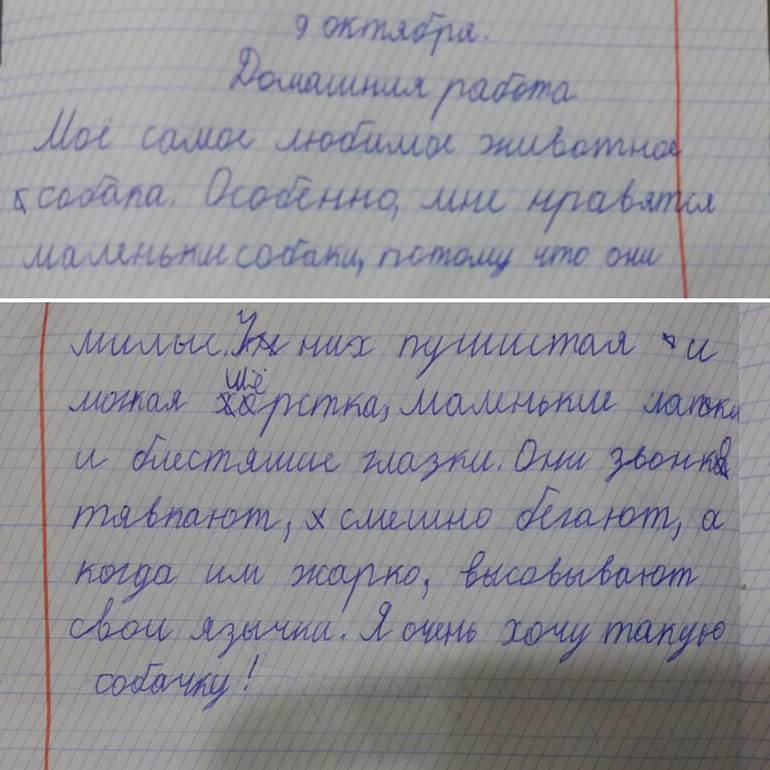 9 октября.
Домашния работа
Моё самое любимое животное
собака. Особенно, мне нравятся
маленьки собаки, потому что они
милые. У них пушистая и
мягкая шёрстка, маленькие лапки
и блестяшие глазки. Они звонко
тявкают, смешно бегают, а
когда им жарко, высовывают
свои язычки. Я очень хочу такую
собачку!